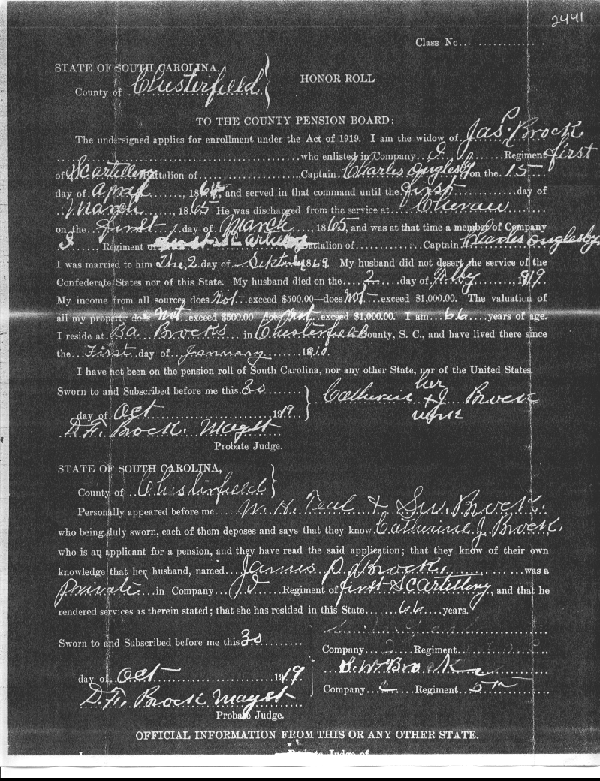 2441
Class No.
STATE OF SOUTH CAROLINA,
County of Chesterfield
HONOR ROLL
TO THE COUNTY PENSION BOARD:
The undersigned applies for enrollment under the Act of 1919. I am the widow of Jas P Brock
who enlisted in Company I Regiment first
of S C artillery Battalion of Captain Charles on the 15
day of April, 1864, and served in that command until the first day of
March 1865 He was discharged from the service at Cheraw
on the first day of March 1865, and was at that time a member of Company
I Regiment or first S C artillery Battalion of Captain Charles
I was married to him The 2 day of Sept 1869. My husband did not desert the service of the
Confederate States nor of this State. My husband died on the 2 day of 919.
My income from all sources does Not exceed $500.00—does Not exceed $1,000.00. The valuation of
all my property does Not exceed $500.00 does Not exceed $1,000.00. I am 66 years of age.
I reside at Brocks in Chesterfield County, S. C., and have lived there since
the First day of January 1910
I have not been on the pension roll of South Carolina, nor any other State, nor of the United States.
Sworn to and Subscribed before me this 30
day of Oct 1919
Catherine her x J Brock
mark
D. F. Brock. Magst
Probate Judge.
STATE OF SOUTH CAROLINA,
County of Chesterfield
Personally appeared before me M. H. Teal & S. W. Brock
who being duly sworn, each of them deposes and says that they know Catherine J Brock.
who is an applicant for a pension, and they have read the said application; that they know of their own
knowledge that her husband, named James P Brock, was a
Private in Company I Regiment of first S C artillery, and that he
rendered services as therein stated; that she has resided in this State 66 years.
Sworn to and Subscribed before me this 30
Company Regiment
day of Oct 1919.
S. W. Brock
D. F. Brock Magst
Company Regiment 5th
Probate Judge.
OFFICIAL INFORMATION FROM THIS OR ANY OTHER STATE.
Probate Judge of